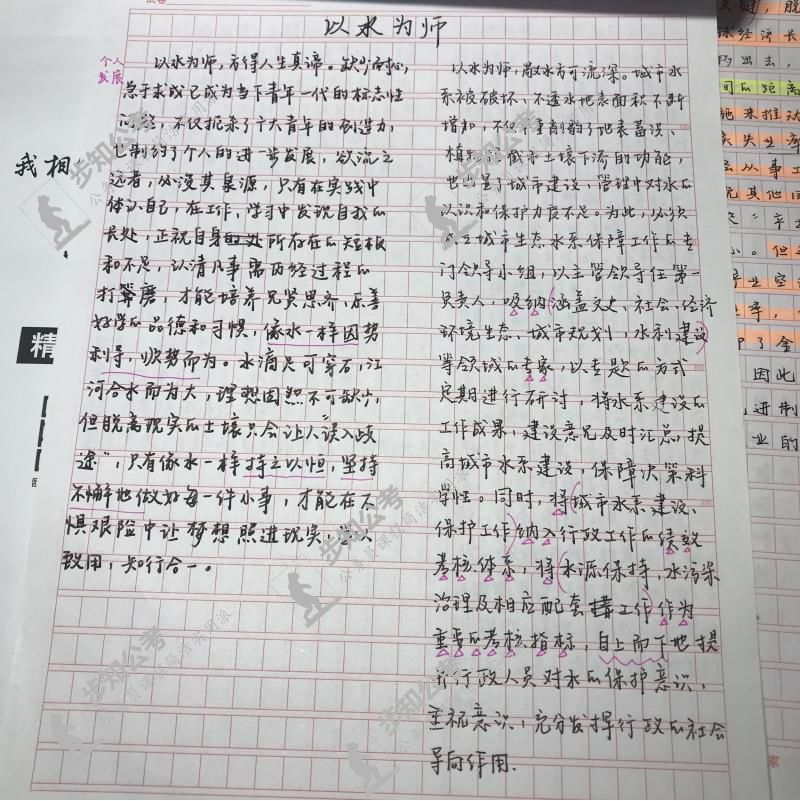 以水为师
个人
发展
以水为师，方得人生真谛。缺少耐心，
急于求成已成为当下青年一代的标志性
问题，不仅扼杀了广大青年的创造力，
也制约了个人的进一步发展，欲流之
远者，必浚其泉源，只有在实践中
体认自己，在工作、学习中发现自我的
长处，正视自身所存在的短板
和不足，认清凡事需历经过程的
打磨，才能培养见贤思齐、乐善
好学的品德和习惯，像水一样因势
利导，顺势而为。水滴足可穿石，江
河合水而为大，理想固然不可缺少，
但脱离现实的土壤只会让人“误入歧
途”，只有像水一样持之以恒，坚持
不懈地做好每一件小事，才能在不
惧艰险中让梦想照进现实，
致用，知行合一。
以水为师，散水方可流深。城市水
系被破坏、不透水地表面积不断
增加，不仅严重剥削了地表蓄洪、
植被截留土壤下渗的功能，
也凸显了城市建设、管理中对水的
认识和保护力度不足。为此，必须
成立城市生态水系保障工作的专
门领导小组，以主管领导任第一
负责人，吸纳涵盖文史、社会、经济
环境生态、城市规划，水利建设
等领域的专家，以专题的方式
定期进行研讨，将水系建设的
工作成果，建设意见及时汇总，提
高城市水系建设，保障决策科
学性。同时，将城市水系建设、
保护工作纳入行政工作的绩效
考核体系，将水源保持，水污染
治理及相应配套工作作为
重要的考核指标，自上而下地提
升行政人员对水的保护意识、
重视意识，充分发挥行政的社会
导向作用.
我相
精
步知公考
公务员课程简洁实用派
步知公考
公务员课程简洁实用派
步知公考
公务员课程简洁实用派
步知公考
步知公考